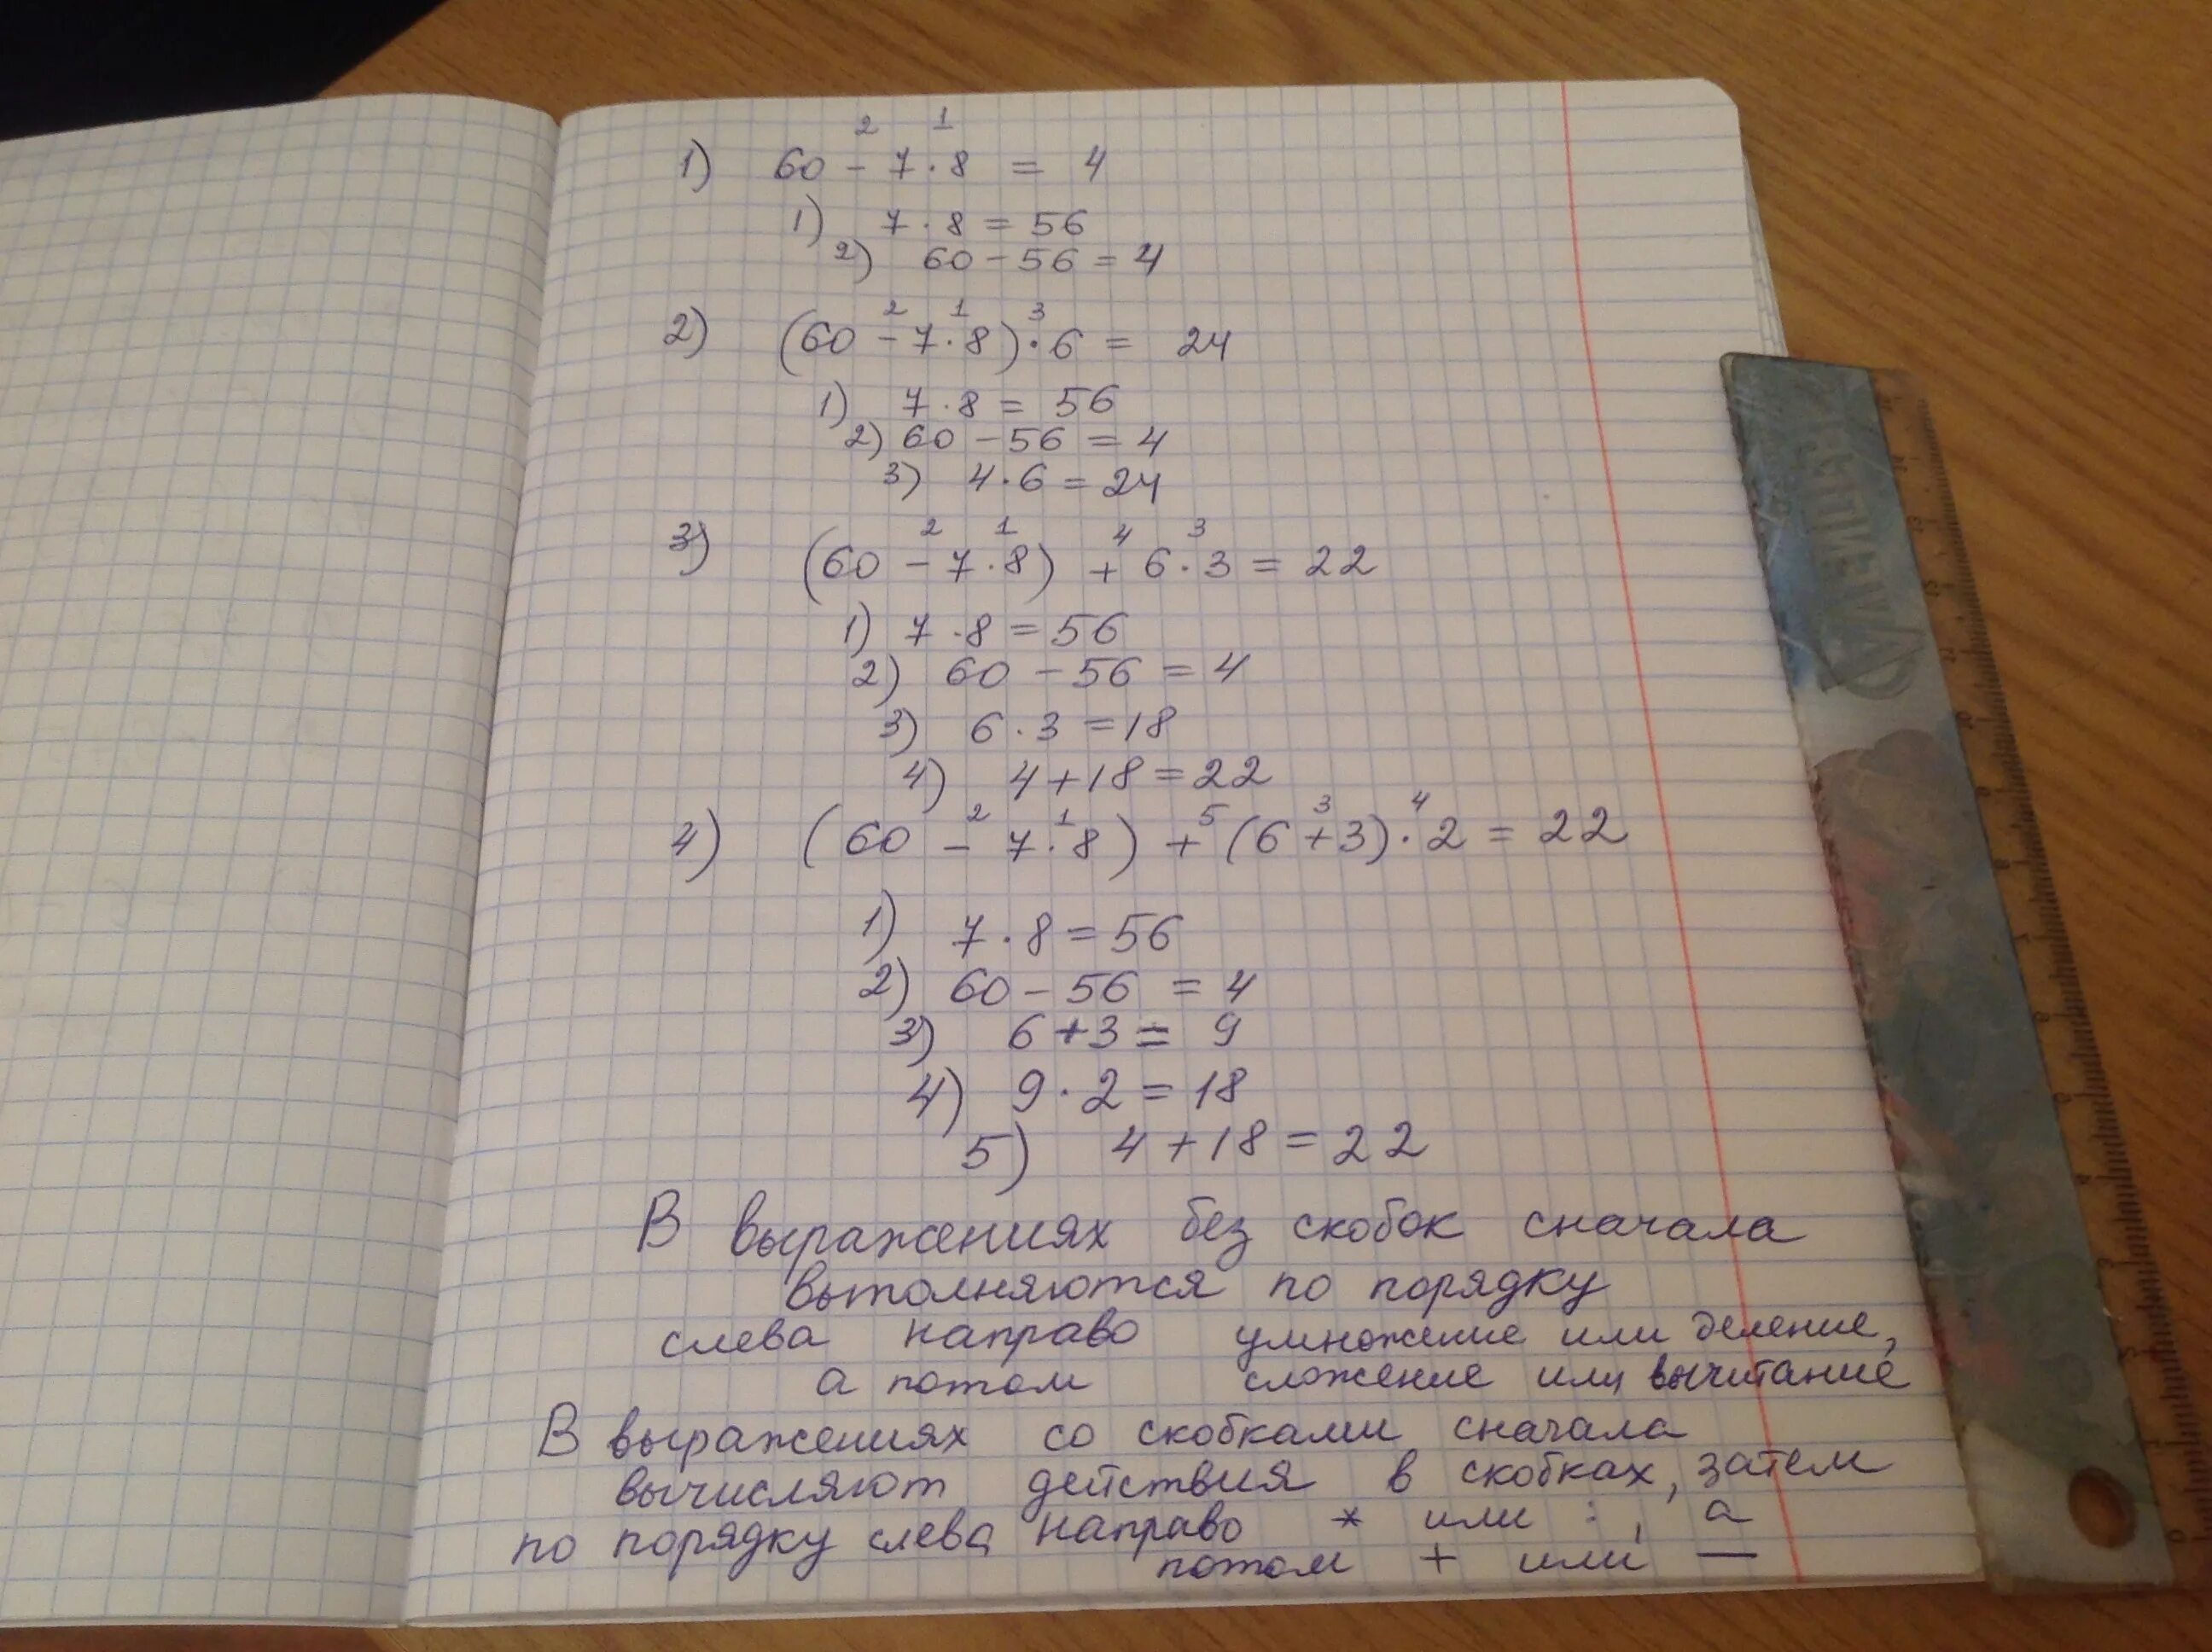 2 1
1) 60 - 7 · 8 = 4
1) 7 · 8 = 56
2) 60 - 56 = 4
2 1 3
2) (60 - 7 · 8) · 6 = 24
1) 7 · 8 = 56
2) 60 - 56 = 4
3) 4 · 6 = 24
2 1 4 3
3) (60 - 7 · 8) + 6 · 3 = 22
1) 7 · 8 = 56
2) 60 - 56 = 4
3) 6 · 3 = 18
4) 4 + 18 = 22
2 1 5 3 4
4) (60 - 7 · 8) + (6 + 3) · 2 = 22
1) 7 · 8 = 56
2) 60 - 56 = 4
3) 6 + 3 = 9
4) 9 · 2 = 18
5) 4 + 18 = 22
В выражениях без скобок сначала
выполняются по порядку
слева направо умножение или деление,
а потом сложение или вычитание
В выражениях со скобками сначала
вычисляют действия в скобках, затем
по порядку слева направо × или : , а
потом + или —